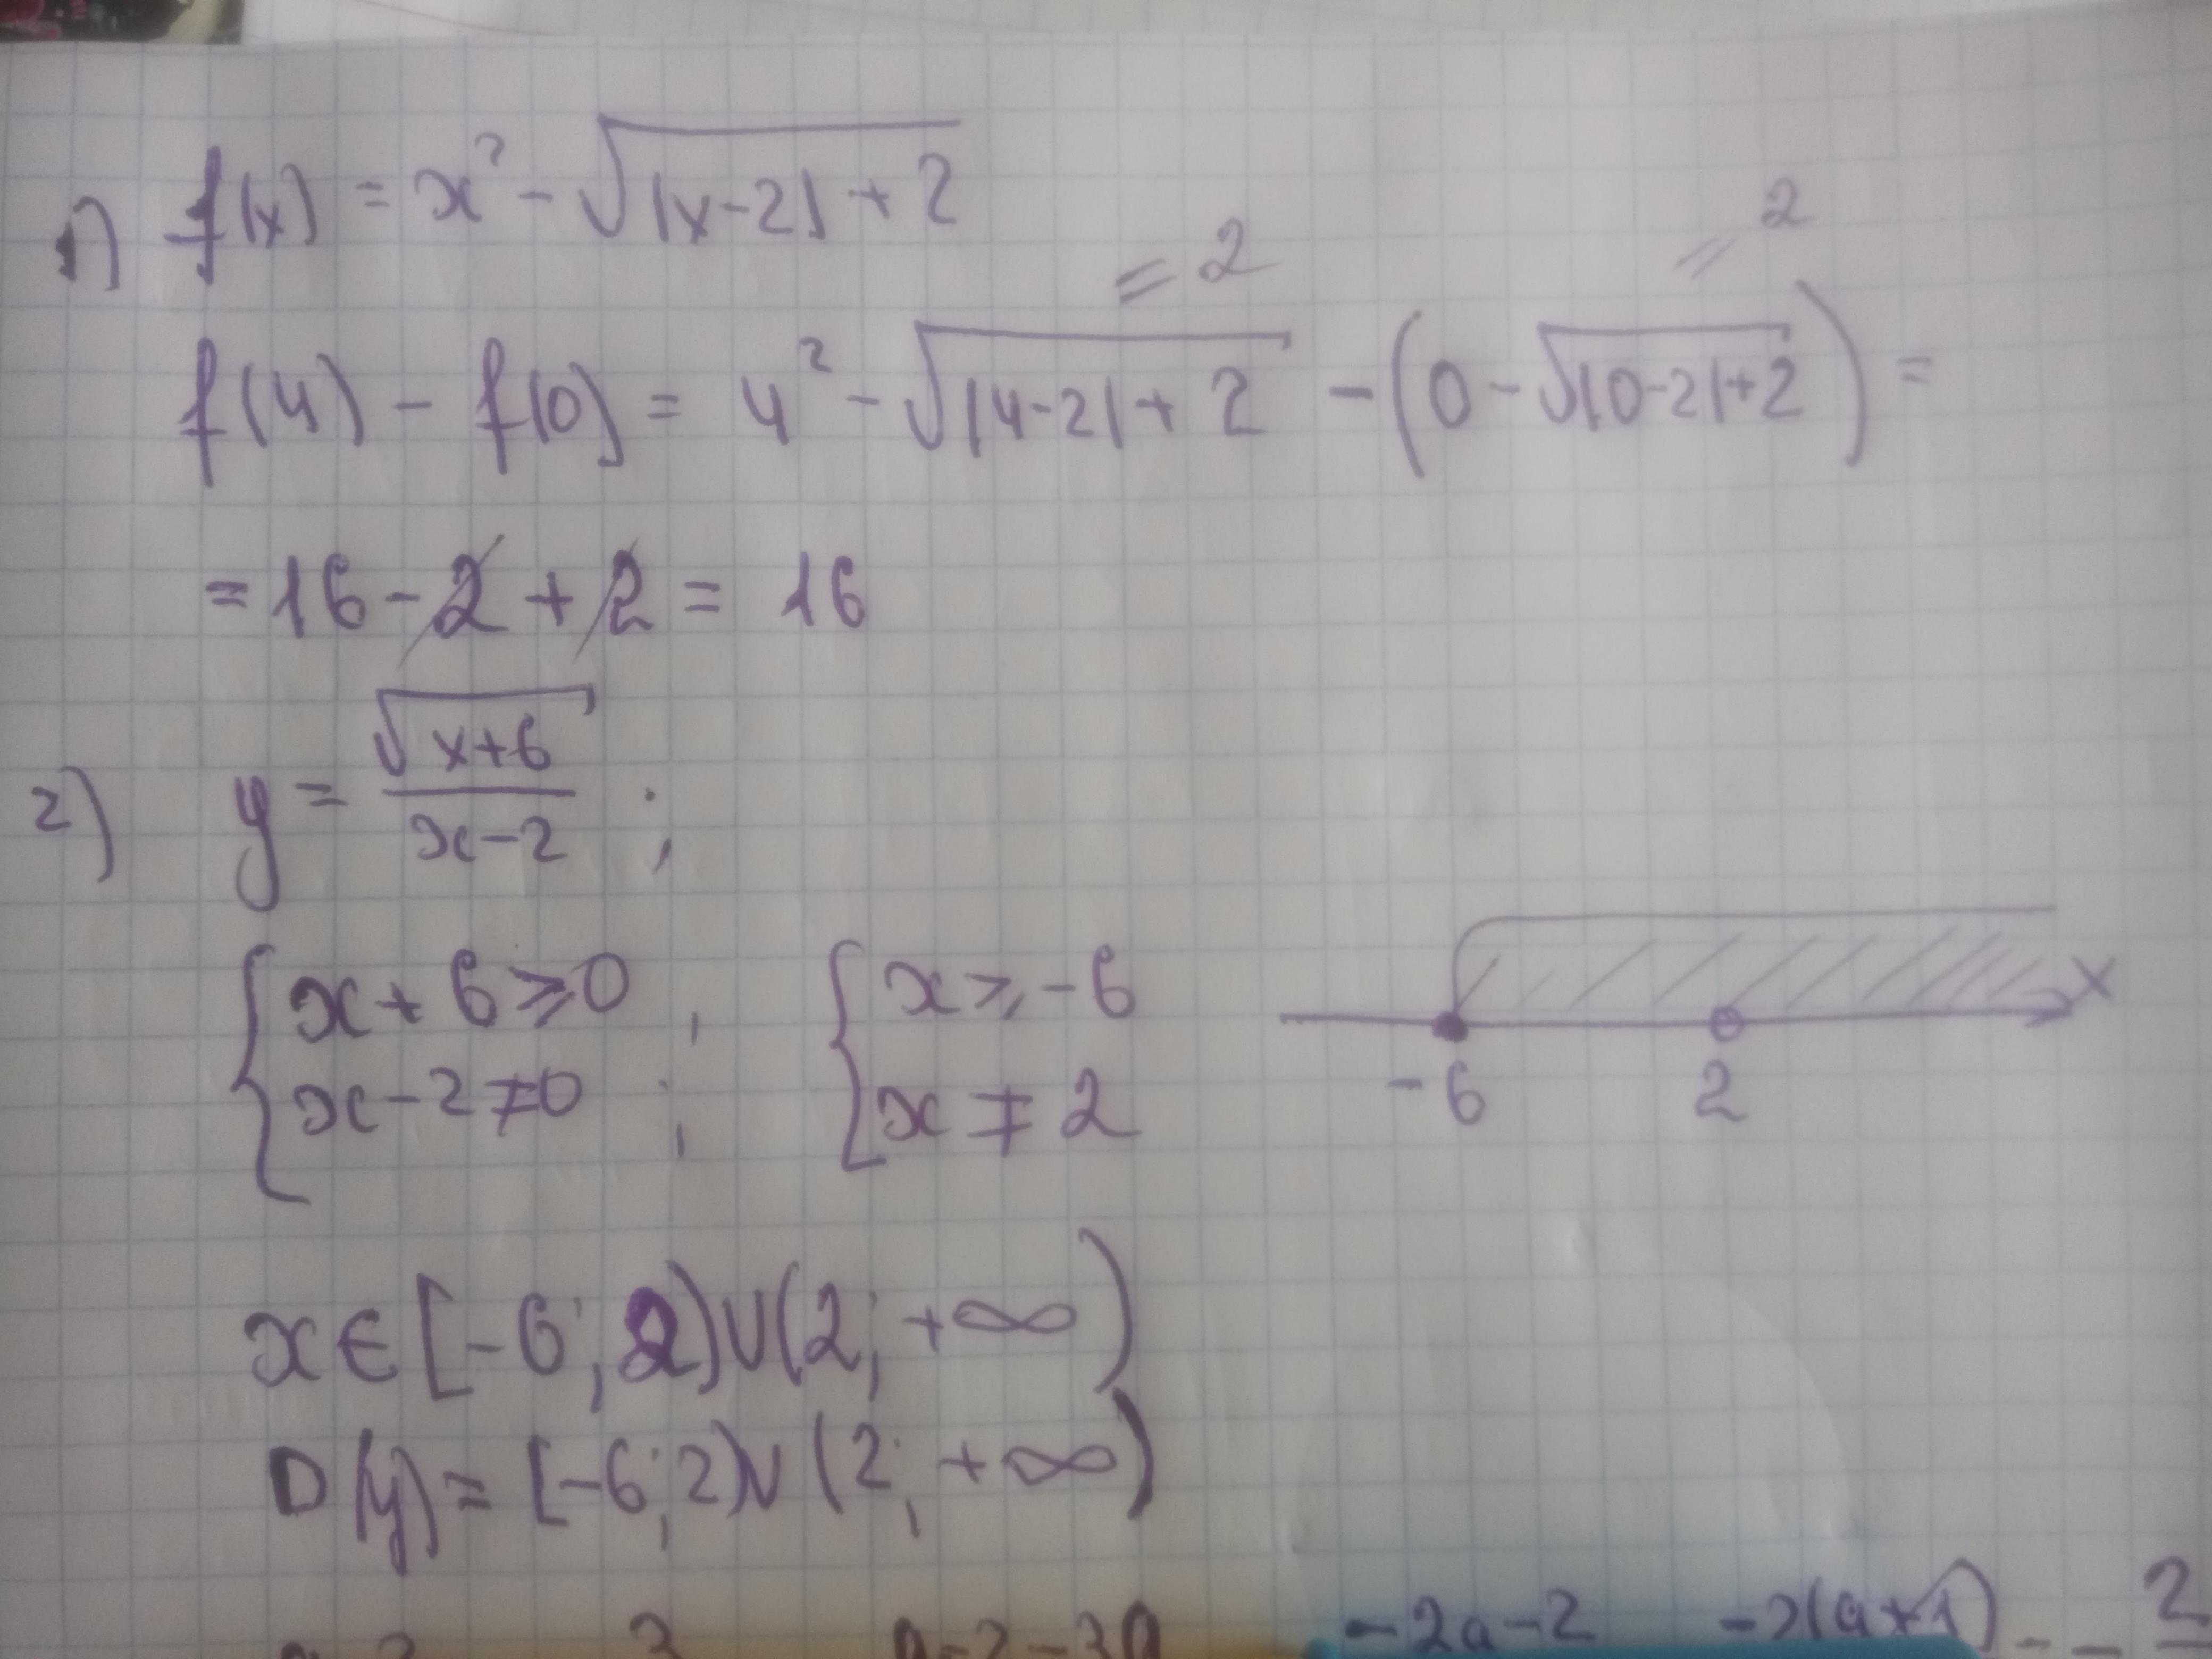 1) f(x) = x² - √(|x-2| + 2)
= 2 = 2
f(4) - f(0) = 4² - √(|4-2| + 2) - (0 - √(|0-2| + 2)) =
= 16 - 2 + 2 = 16
2) y = √(x+6) / (x-2) ;
{ x + 6 ≥ 0 , { x ≥ -6 x
{ x - 2 ≠ 0 ; { x ≠ 2 -6 2
x ∈ [-6; 2) ∪ (2; +∞)
D(y) = [-6; 2) ∪ (2; +∞)
-2a-2 -2(a+1) - - 2